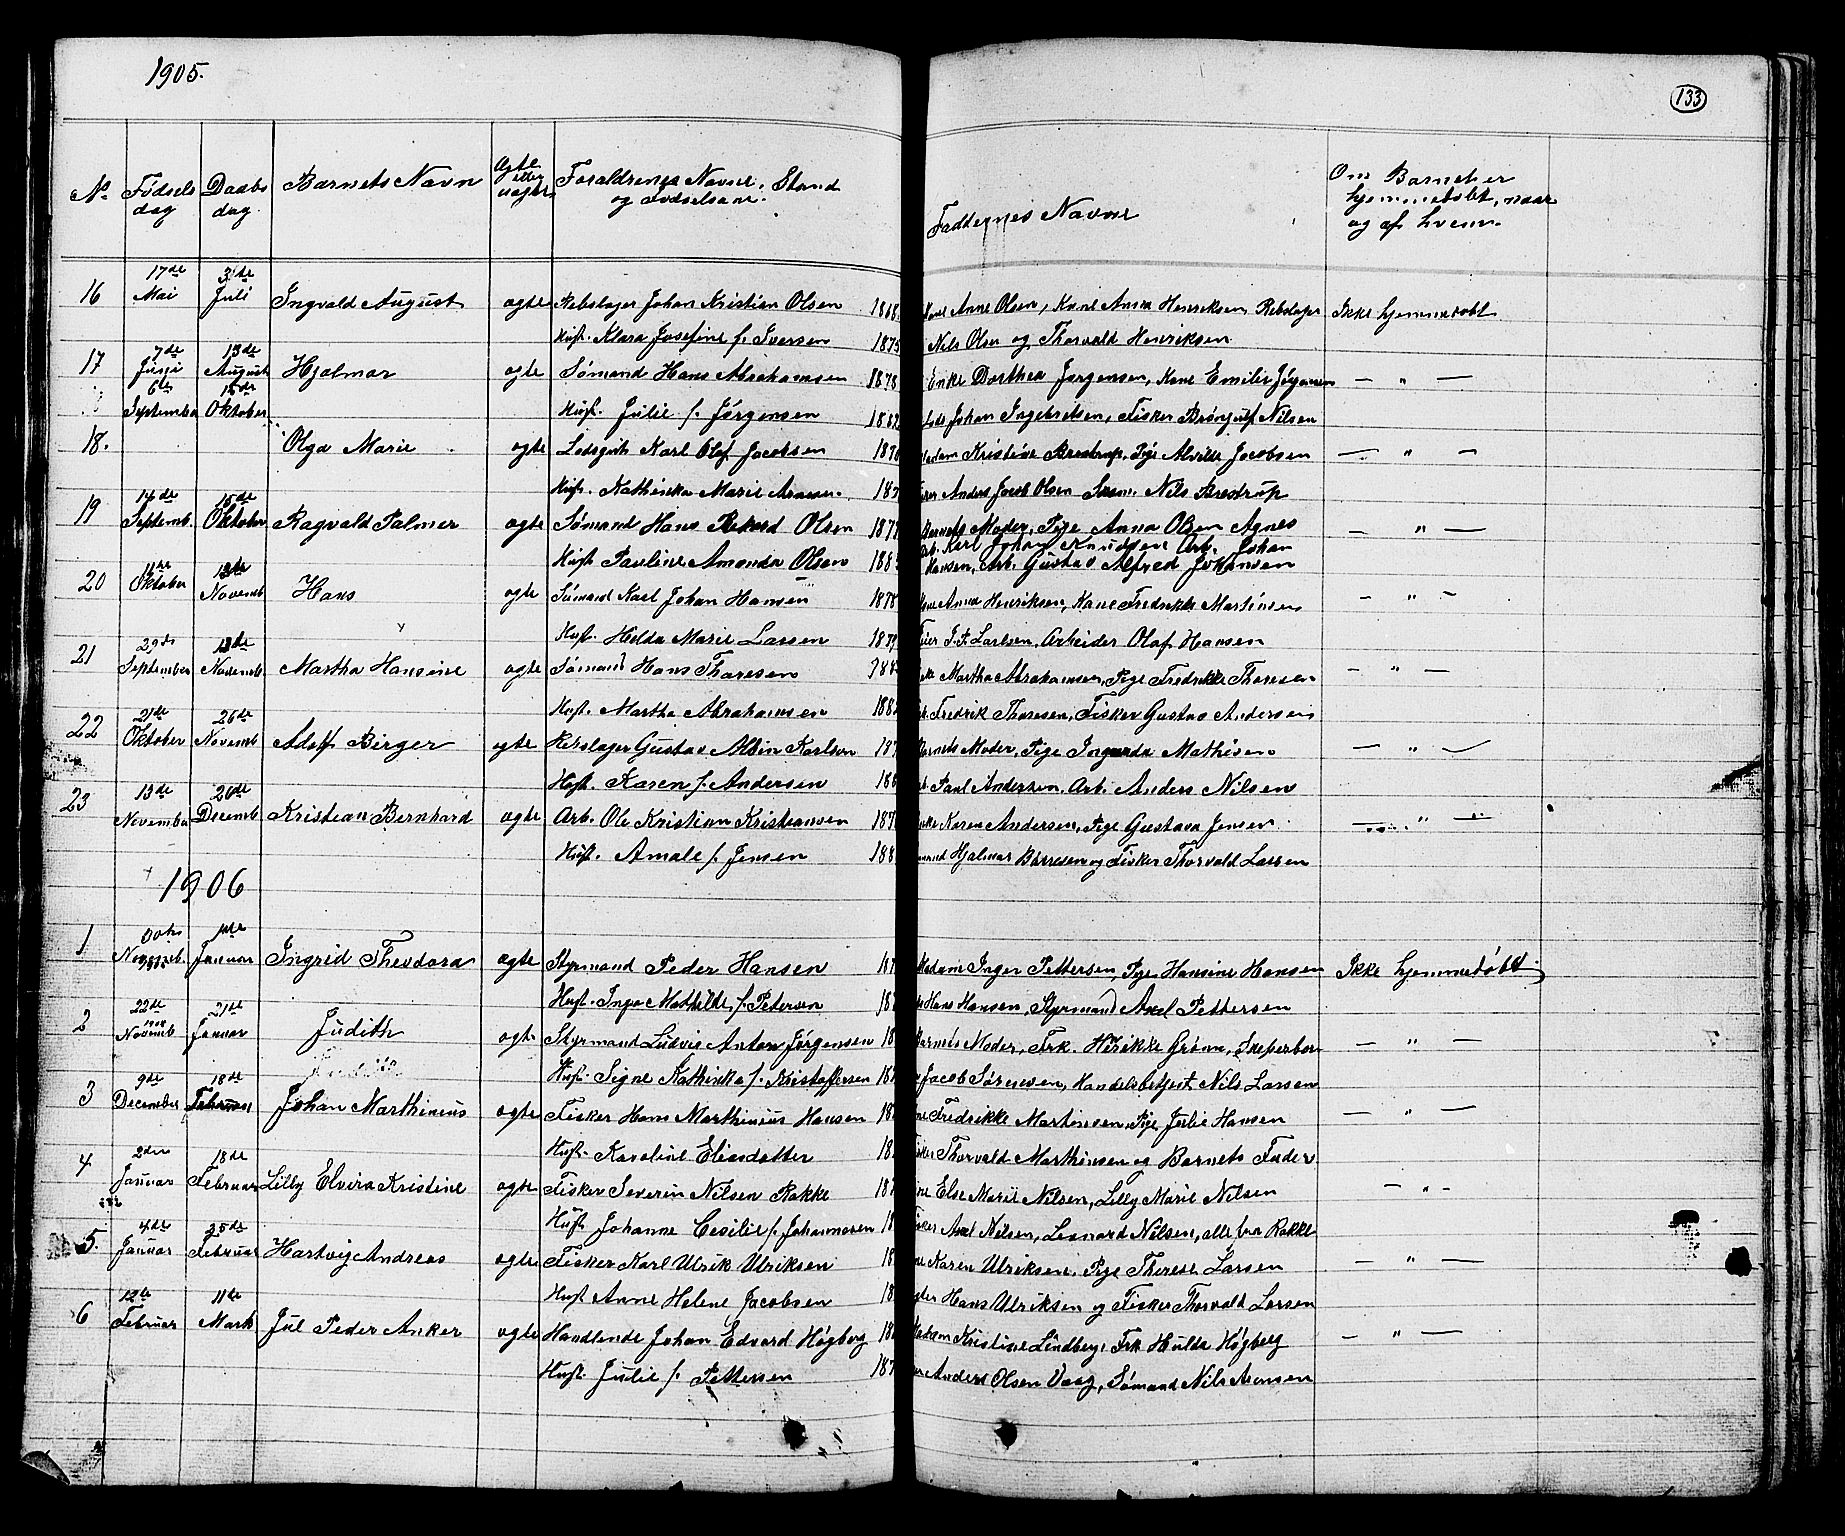 1905.
133
No Fødsels Daabs Barnets Navn Ægte Forældrenes Navne, Stand Faddernes Navne Om Barnet er
dag dag eller uægte og Fødselsaar. hjemmedøbt, naar
og af hvem.
17de 3die
16 Mai Juli Ingvald August ægte Rebslager Johan Kristian Olsen 1868 Anne Olsen, Kone Anna Henriksen, Rebslager Ikke hjemmedøbt
Hust. Klara Josefine f. Iversen 1875 Nils Olsen og Thorvald Henriksen
17 7de Juni 13de August Hjalmar ægte Sømand Hans Abrahamsen 1878 Enke Dorthea Jørgensen, Kone Emilie Jørgensen — " —
6te 15de
September Oktober Hust. Julie f. Jørgensen 1882 Johan Ingebretsen, Fisker Brønjulf Nilsen
18. Olga Marie ægte Lodsgut Karl Olaf Jacobsen Madam Kristine Brestrup, Pige Alvilde Jacobsen — " —
Hust. Kathinka Marie Anders Jacob Olsen Nils Brestrup
14de 15de
19 Septemb. Oktober Ragvald Palmer ægte Sømand Hans Rikard Olsen Barnets Moder, Pige Anna Olsen Agnes — " —
Arb. Karl Johan Knudsen Arb. Johan
Hust. Pauline Amanda Olsen Hansen, Arb. Gustav Alfred Johansen
20 Oktober Novemb Hans ægte Sømand Karl Johan Hansen 1878 Anna Henriksen, Kone Fredrikke Martinsen — " —
Hust. Helda Marie Larsen 1879 J. A. Larsen, Arbeider Olaf Hansen
21 29de September Novemb Martha Hansine ægte Sømand Hans Thoresen Martha Abrahamsen, Pige Fredrikke Thoresen — " —
Hust. Martha Abrahamsen Fredrik Thoresen, Fisker Gustav Andersen
21de 26de
22 Oktober Novemb Adolf Birger ægte Rebslager Gustav Albin Karlson Barnets Moder, Pige Ingarda Mathisen — " —
Hust. Karen f. Andersen Paul Andersen, Arb. Anders Nilsen
13de 26de
23 November Decemb Kristian Bernhard ægte Arb. Ole Kristian Kristiansen Karen Andersen, Pige Gustava Jensen — " —
Hust. Amale f. Jensen Hjalmar Børresen og Fisker Thorvald Larsen
1906
1 Novemb. Januar Ingrid Theodora ægte Styrmand Peder Hansen Madam Inger Pettersen, Pige Hansine Hansen Ikke hjemmedøbt
Hust. Inga Mathilde f. Petersen Hans Hansen, Styrmand Axel Pettersen
22de 21de
2 Novemb Januar Judith ægte Styrmand Ludvig Anton Jørgensen Barnets Moder, Frk. Henrikke Grønn, — " —
Hust. Signe Kathinka f. Kristoffersen Jacob Sørensen, Handelsbetjent Nils Larsen
9de 18de
3 December Februar Johan Marthinius ægte Fisker Hans Marthinius Hansen Fredrikke Martinsen, Pige Julie Hansen — " —
Hust. Karoline Eliasdatter Thorvald Marthinsen og Barnets Fader
2den 18de
4 Januar Februar Lilly Elvira Kristine ægte Fisker Severin Nilsen Rakke Else Marie Nilsen, Lilly Marie Nilsen — " —
Hust Johanne Cecilie f. Johannesen Axel Nilsen, Leonard Nilsen, alle fra Rakke
4de 25de
5. Januar Februar Hartvig Andreas ægte Fisker Karl Ulrik Ulriksen Karen Ulriksen, Pige Therese Larsen — " —
Hust Anne Helene Jacobsen Hans Ulriksen og Fisker Thorvald Larsen
12te 11te
6 Februar Marts Jul Peder Anker ægte Handlende Johan Edvard Høgberg Madam Kristine Lindberg, Frk Hulda Høgberg — " —
Hust. Julie f. Pettersen Anders Olsen Vaag, Sømand Nils Aronsen